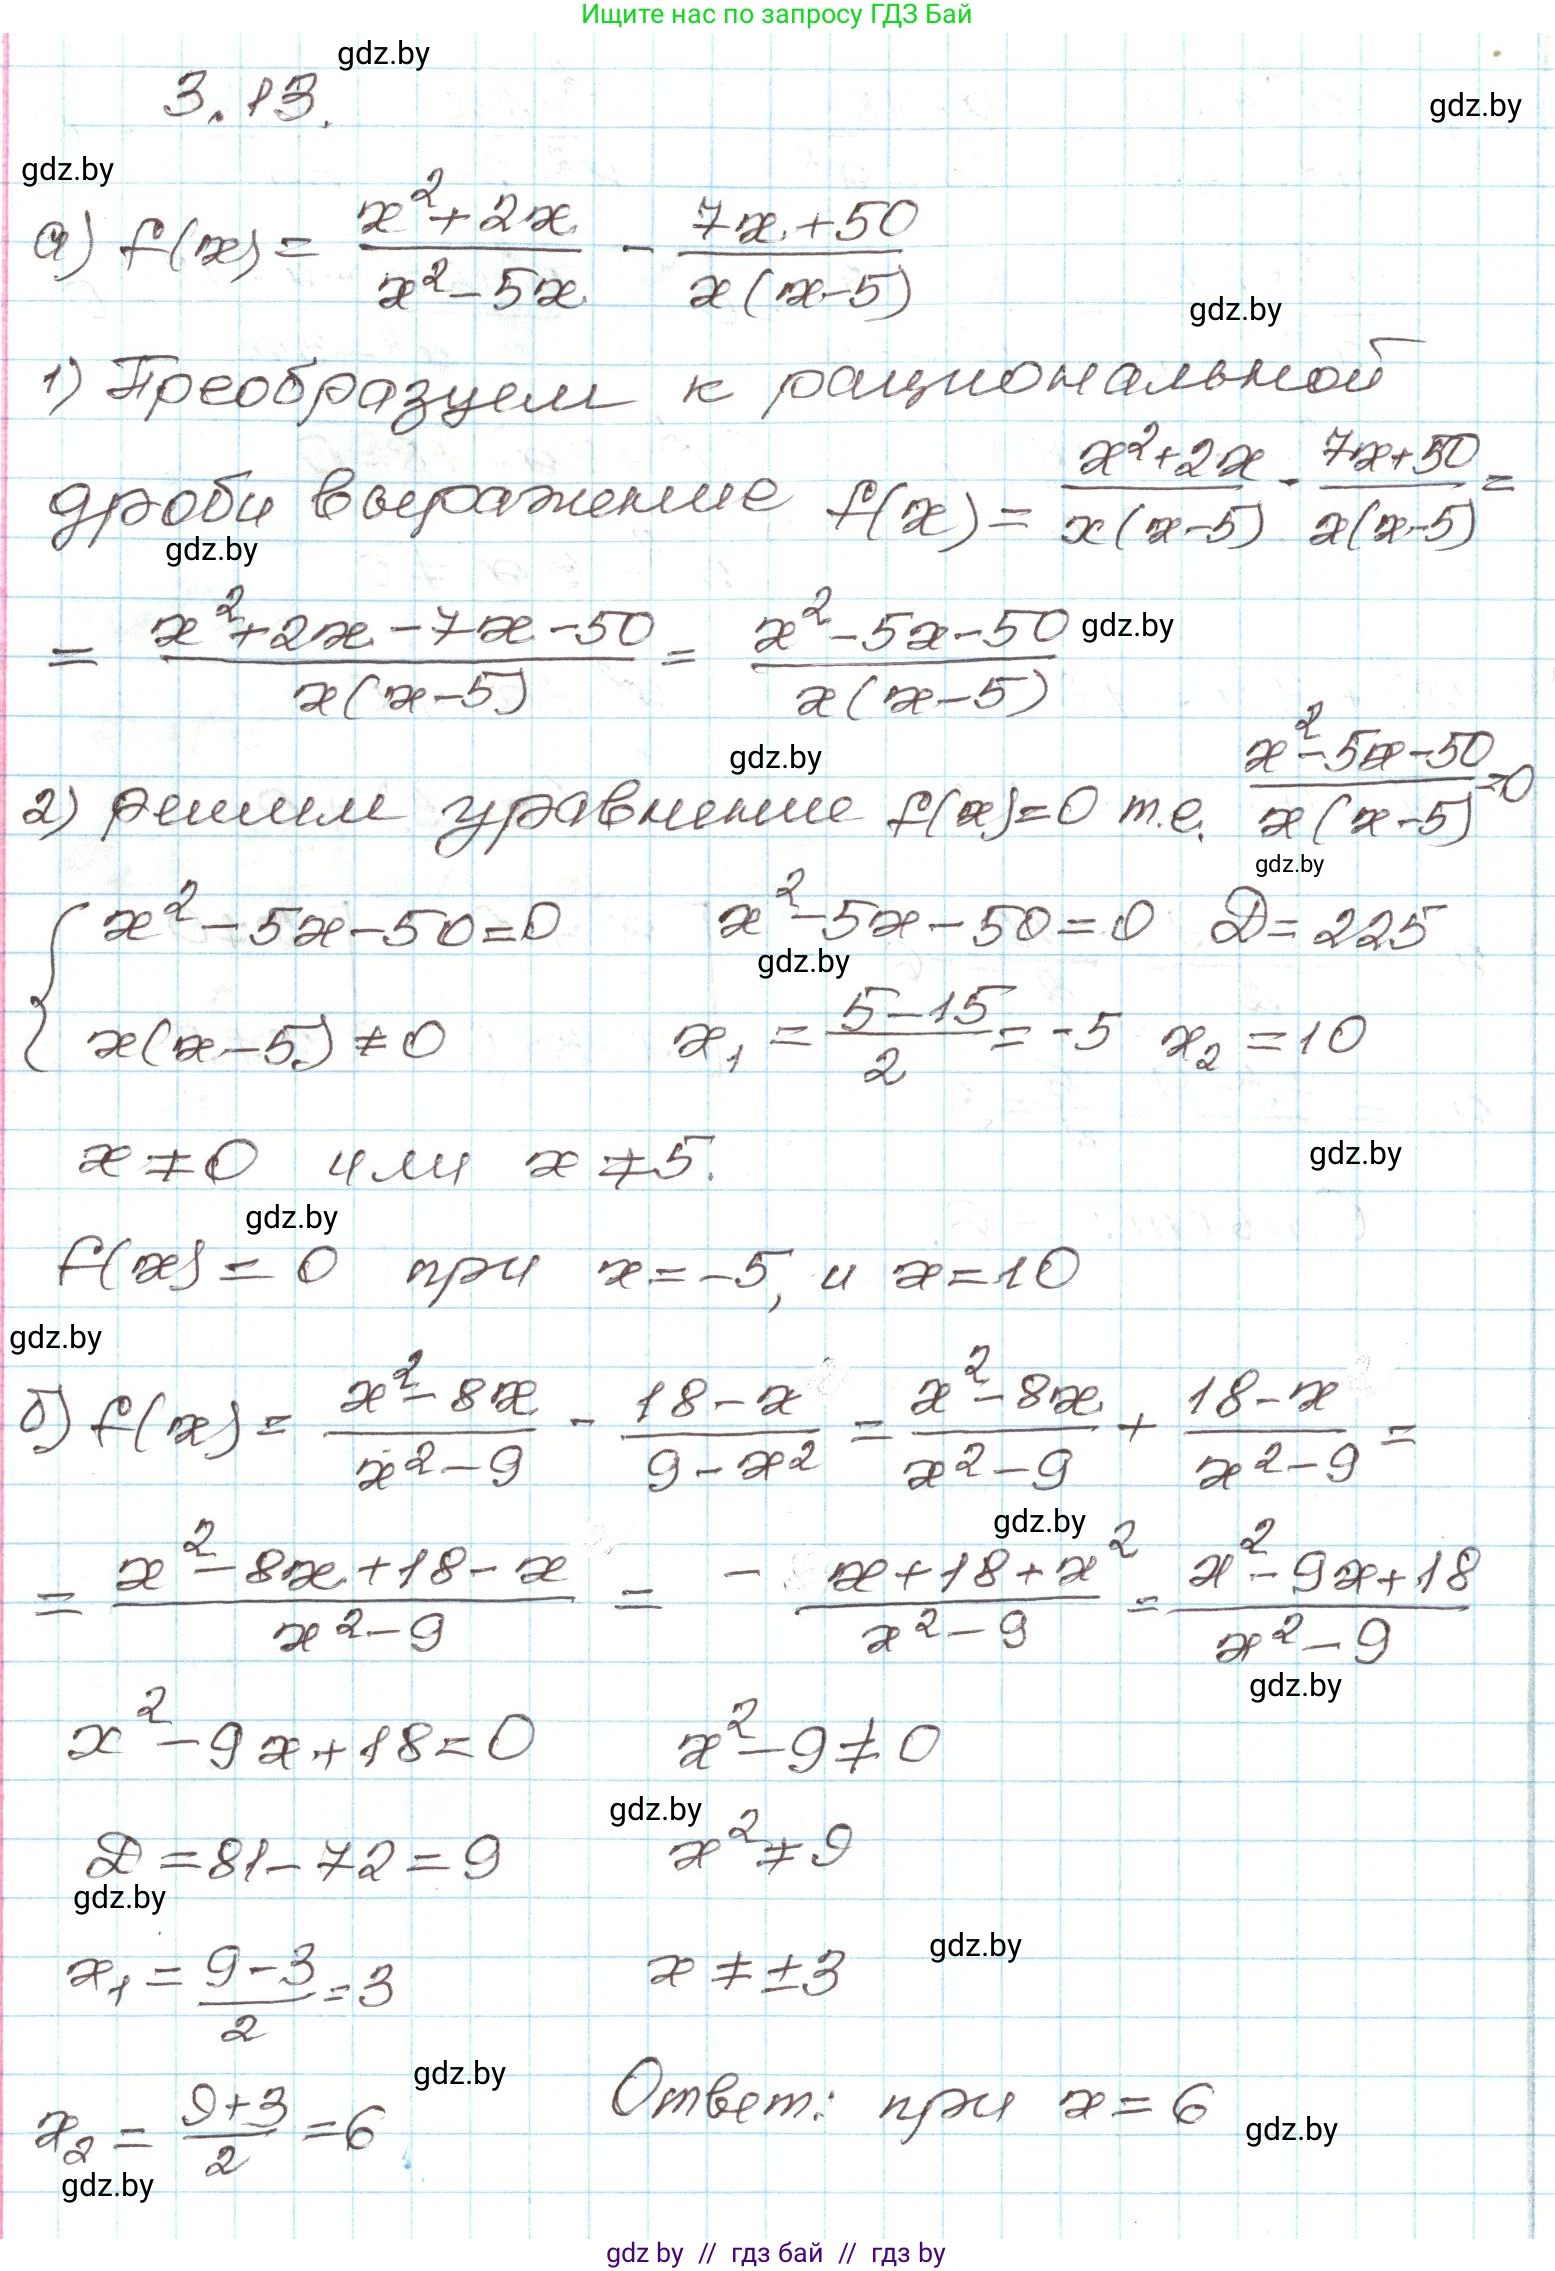 Ищите нас по запросу ГДЗ Бай
gdz.by
3.13.
gdz.by
gdz.by
а) f(x) = (x² + 2x)/(x² - 5x) - (7x + 50)/(x(x-5))
gdz.by
1) Преобразуем к рациональной
дроби выражение f(x) = (x²+2x)/(x(x-5)) - (7x+50)/(x(x-5)) =
gdz.by
= (x² + 2x - 7x - 50)/(x(x-5)) = (x² - 5x - 50)/(x(x-5))
gdz.by
gdz.by
2) решим уравнение f(x)=0 т.е. (x²-5x-50)/(x(x-5)) =0
gdz.by
{ x² - 5x - 50 = 0 x² - 5x - 50 = 0 D = 225
gdz.by
x(x-5) ≠ 0 x₁ = (5-15)/2 = -5 x₂ = 10
x ≠ 0 или x ≠ 5.
gdz.by
gdz.by
f(x) = 0 при x = -5, и x = 10
gdz.by
б) f(x) = (x² - 8x)/(x² - 9) - (18 - x)/(9 - x²) = (x² - 8x)/(x² - 9) + (18 - x)/(x² - 9) =
gdz.by
= (x² - 8x + 18 - x)/(x² - 9) = - (x + 18 + x²)/(x² - 9) = (x² - 9x + 18)/(x² - 9)
gdz.by
x² - 9x + 18 = 0 x² - 9 ≠ 0
gdz.by
D = 81 - 72 = 9 x² ≠ 9
gdz.by
gdz.by
x₁ = (9 - 3)/2 = 3 x ≠ ±3
gdz.by
x₂ = (9+3)/2 = 6 Ответ: при x = 6
gdz.by
gdz.by
gdz by // гдз бай // гдз by